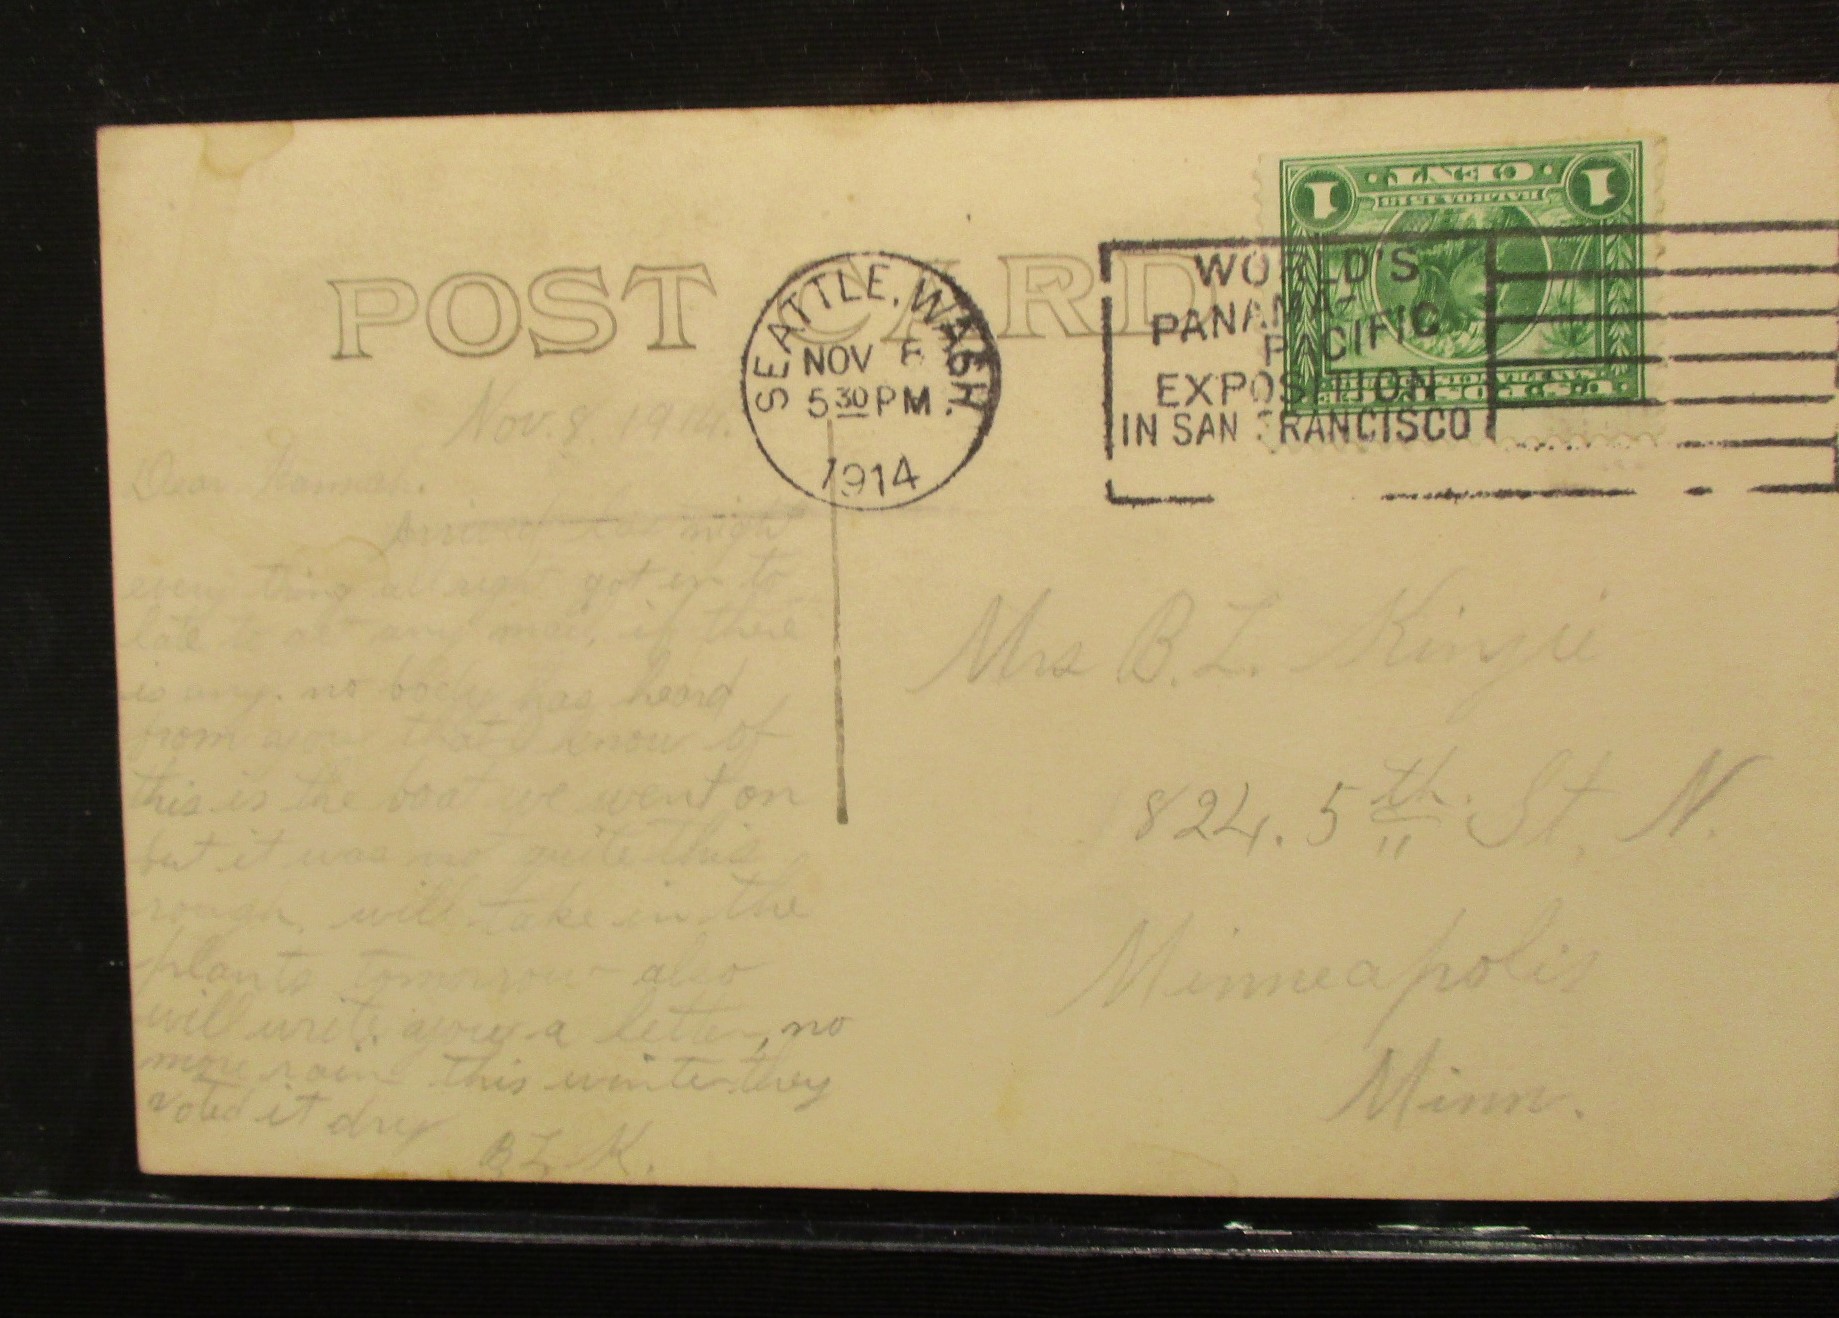 POST CARD
SEATTLE, WASH.
NOV
5 30 PM
1914
WORLD'S
PANAMA-
PACIFIC
EXPOSITION
IN SAN FRANCISCO
1 CENT 1
BALBOA 1513
U.S. POSTAGE
Nov. 8. 1914.
Dear
Arrived night
every thing all right got in to
late to get any mail, if there
is any. no body has heard
from you that I know of
this is the boat we went on
but it was not quite this
rough. will take in the
plants tomorrow also
will write you a letter, no
more rain this winter they
voted it dry
B. L. K.
Mrs B. L. Kinzie
824. 5th St. N.
Minneapolis
Minn.